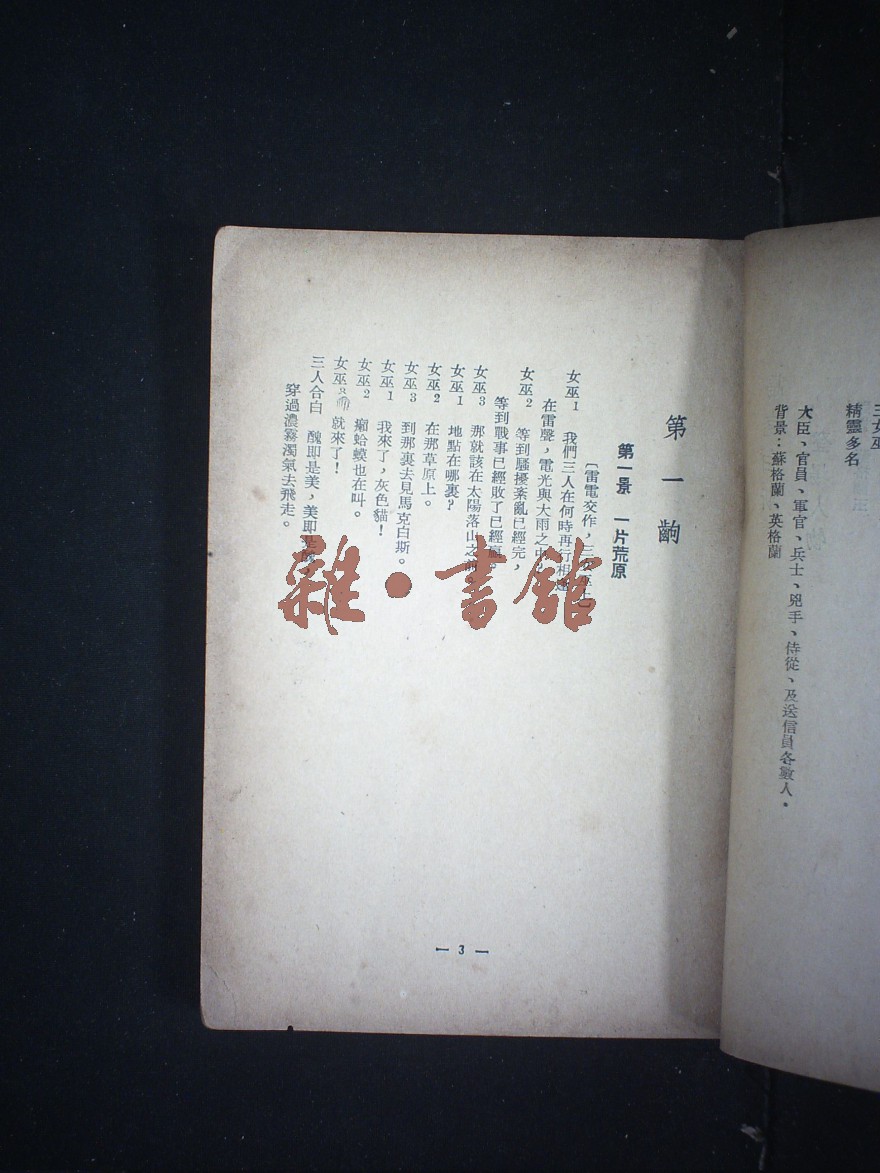 三女巫
精靈多名
大臣、官員、軍官、兵士、兇手、侍從、及送信員各數人。
背景：蘇格蘭、英格蘭
第一齣
第一景 一片荒原
〔雷電交作，三女巫上〕
女巫1 我們三人在何時再行相逢
在雷聲，電光與大雨之中
女巫2 等到騷擾紊亂已經完，
等到戰事已經敗了已經
女巫3 那就該在太陽落山之前。
女巫1 地點在哪裏？
女巫2 在那草原上。
女巫3 到那裏去見馬克白斯。
女巫1 我來了，灰色貓！
女巫2 癩蛤蟆也在叫。
女巫3 就來了！
三人合白 醜即是美，美即是
穿過濃霧濁氣去飛走。
雜·書館
— 3 —